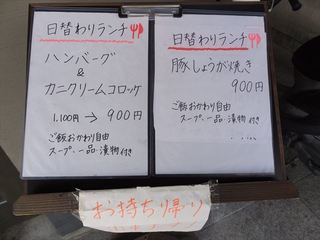 日替わりランチ
ハンバーグ
&
カニクリームコロッケ
1.100円 → 900円
ご飯おかわり自由
スープ、一品、漬物付き
日替わりランチ
豚しょうが焼き
900円
ご飯おかわり自由
スープ、一品、漬物付き
お持ち帰り